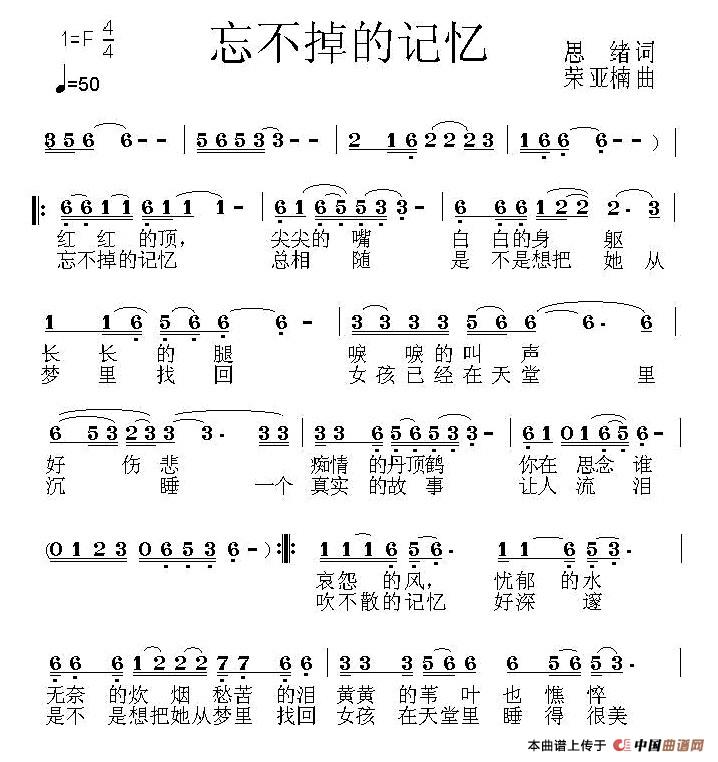 忘不掉的记忆
1=F 4/4
思 绪 词
♩=50
荣 亚 楠 曲
3 5 6 6 - - | 5 6 5 3 3 - - | 2 1 6 2 2 2 3 | 1 6 6 6 - - ) |
6 6 1 1 6 1 1 1 - | 6 1 6 5 5 3 3 - | 6 6 0 1 2 2 2 . 3 |
红 红 的 顶， 尖尖 的 嘴 白 白的 身 躯
忘不掉的记忆 总相 随 是 不是想把 她 从
1 1 6 5 6 6 6 - | 3 3 3 3 5 5 6 6 . 6 |
长 长 的 腿 唳 唳 的 叫 声
梦 里 找 回 女 孩 已 经 在 天 堂 里
6 5 3 2 3 3 3 . 3 3 | 3 3 6 5 5 6 3 5 - | 6 1 0 1 6 5 6 - |
好 伤 悲 痴情 的丹顶鹤 你在 思念 谁
沉 睡 一个 真实 的故 事 让人 流 泪
(0 1 2 3 0 6 5 3 6 - ) 1 1 1 6 5 6 . 1 1 6 5 3 . |
哀怨 的风， 忧郁 的水
吹不散的记忆 好深 邃
6 6 6 1 2 2 2 7 7 6 6 | 3 3 3 6 6 6 5 6 5 3 2 3 |
无奈 的炊 烟 愁苦 的泪 黄黄 的苇 叶 也 憔 悴
是不 是想把她从梦里 找回 女孩 在天堂里 睡 得 很美
本曲谱上传于 中国曲谱网